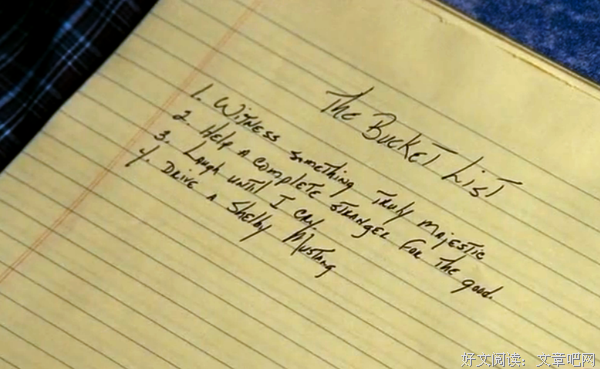 The Bucket List
1. Witness something truly majestic
2. Help a complete stranger for the good.
3. Laugh until I cry.
4. Drive a Shelby Mustang
好文阅读：文章吧网